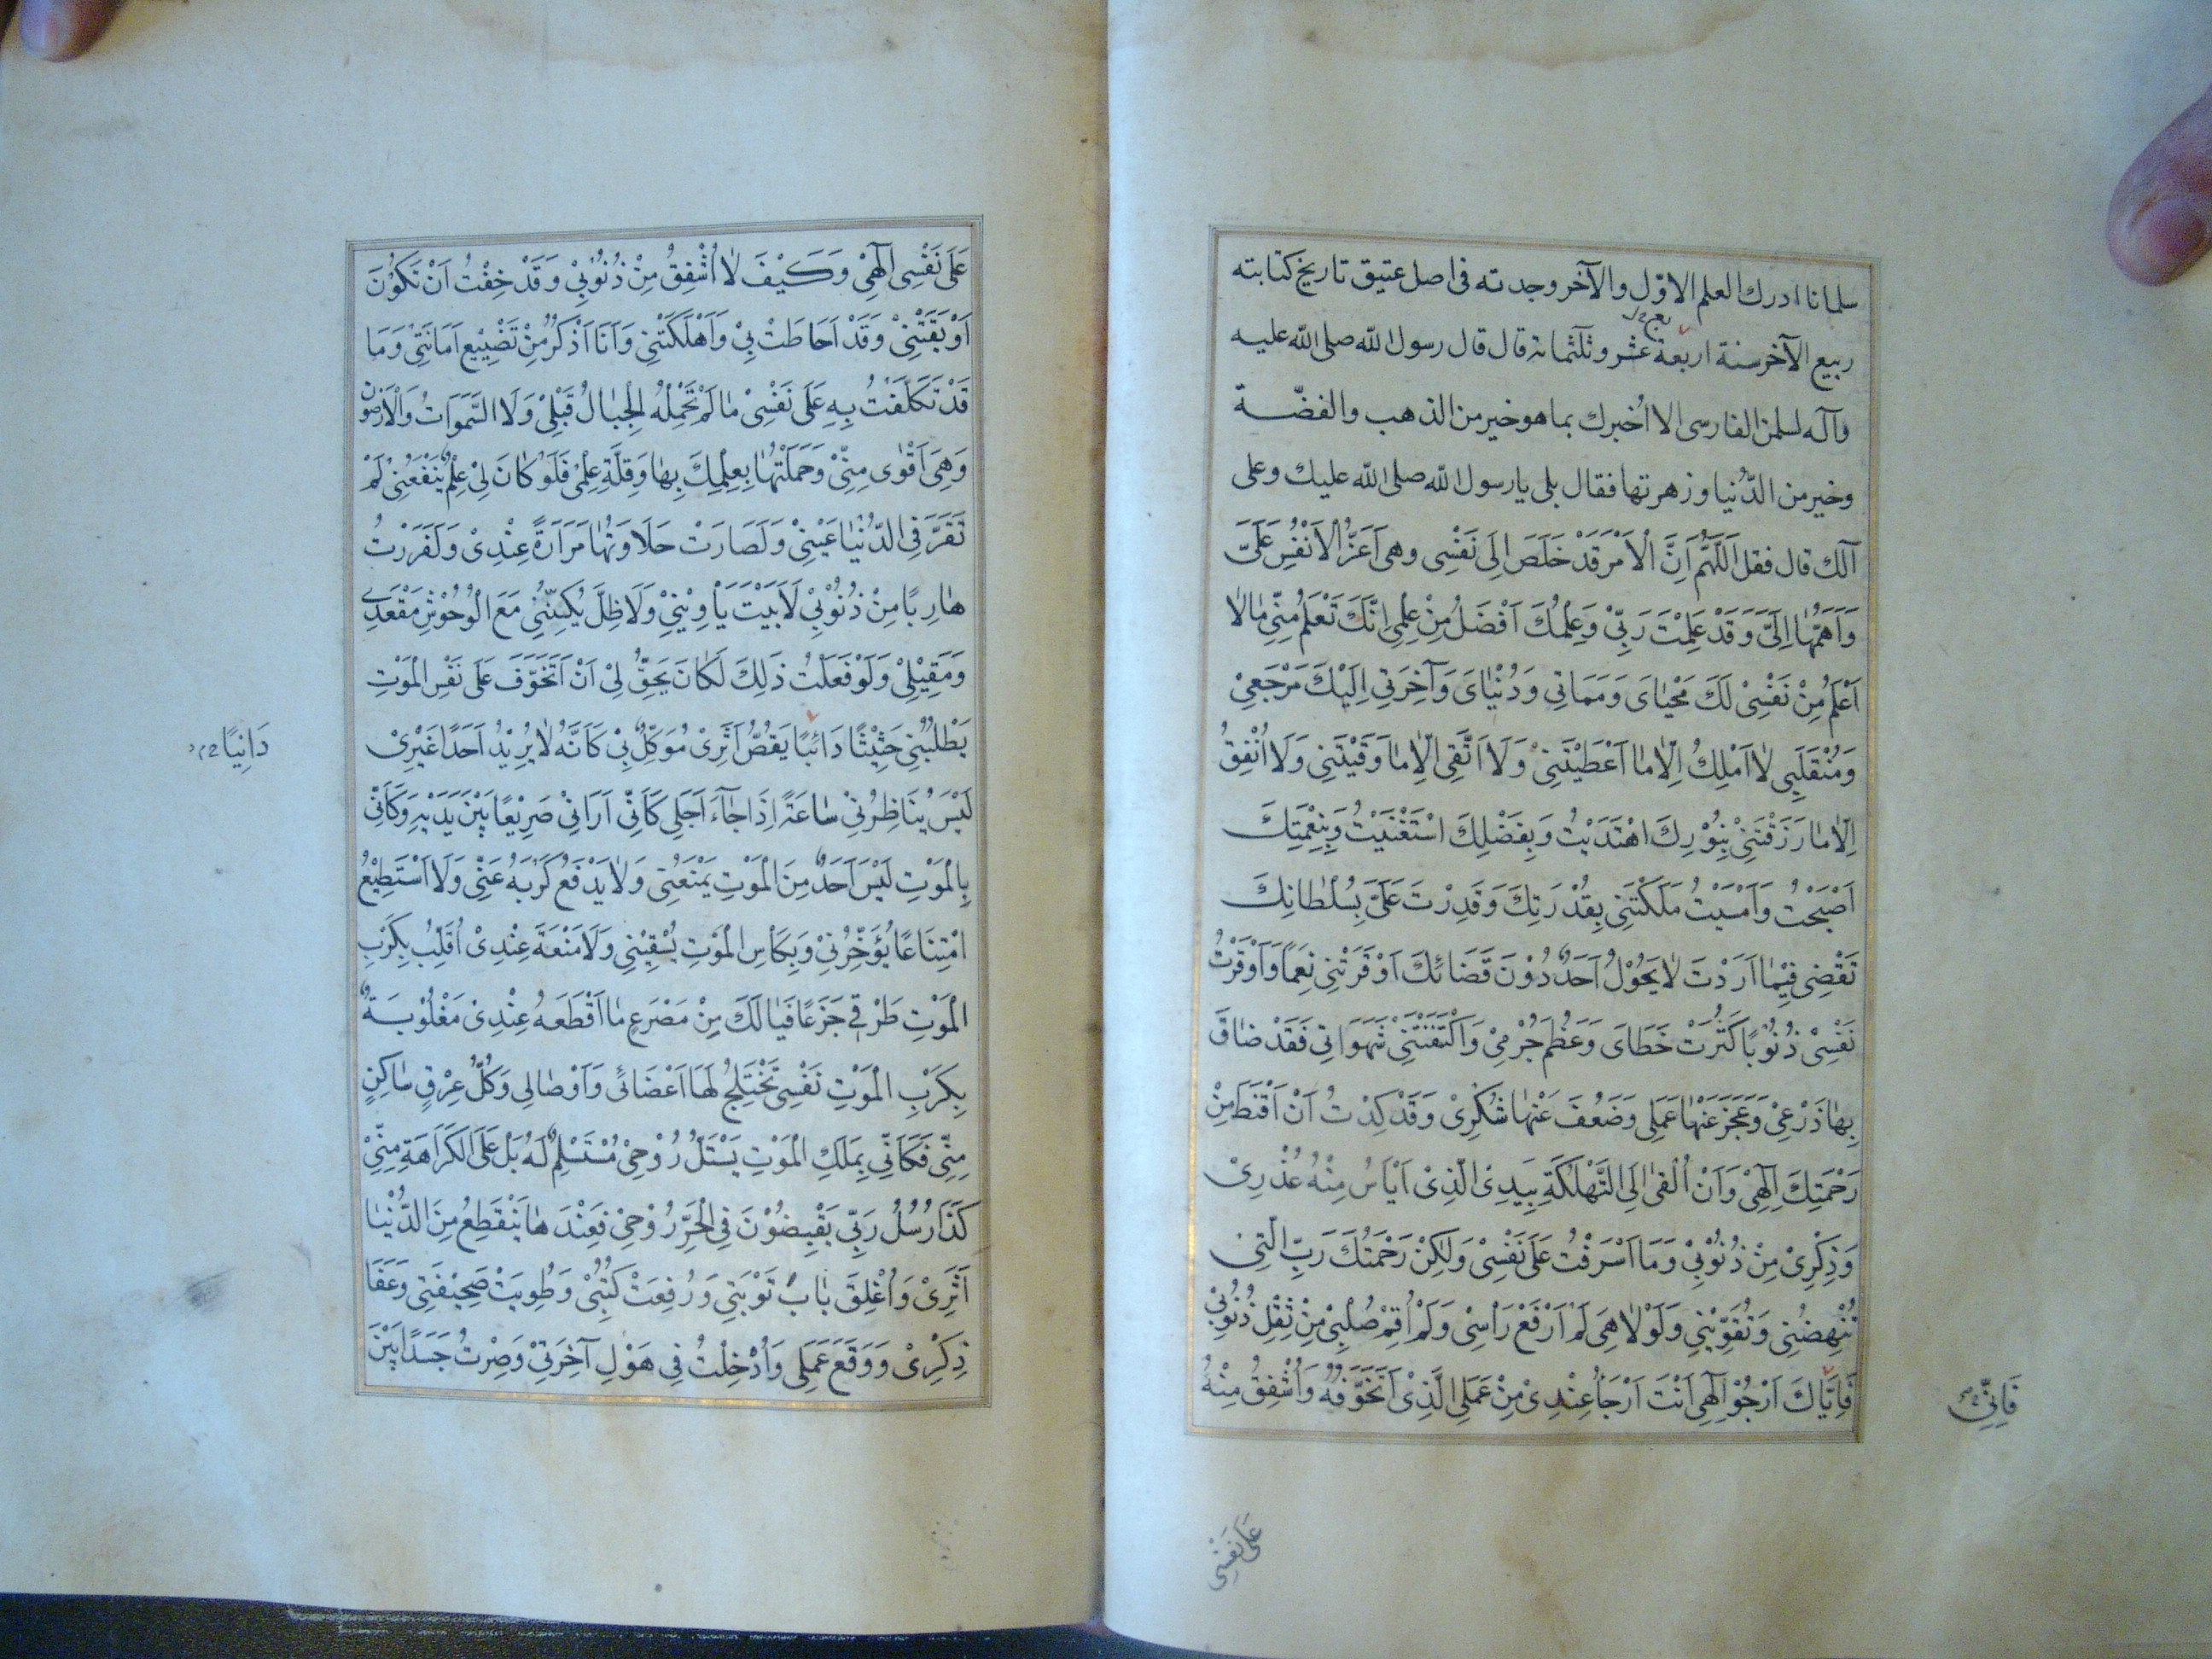 سلمانا ادرك العلم الاوّل والآخر وجدته فى اصل عتيق تاريخ كتابته
ربيع الآخر سنة اربعة عشر وثلثمائة قال قال رسول الله صلى الله عليه
وآله لسلمن الفارسى الا اُخبرك بما هو خير من الذهب والفضّة
وخير من الدُّنيا وزهرتها فقال بلى يا رسول الله صلى الله عليك وعلى
آلك قال فقل اَللّٰهُمَّ اِنَّ الْاَمْرَ قَدْ خَلَصَ اِلَى نَفْسِى وهى اَعَزُّ الْاَنْفُسِ عَلَىَّ
وَاَهَمُّهٰا اِلَىَّ وَقَدْ عَلِمْتَ رَبِّىْ وَعِلْمُكَ اَفْضَلُ مِنْ عِلْمِى اِنَّكَ تَعْلَمُ مِنِّى مٰا لاٰ
اَعْلَمُ مِنْ نَفْسِىْ لَكَ مَحْيٰاىَ وَمَمَاتِى وَدُنْيٰاىَ وَآخِرَتِى اِلَيْكَ مَرْجَعِىْ
وَمُنْقَلَبِى لاٰ اَمْلِكُ اِلّاٰ مٰا اَعْطَيْتَنِىْ وَلاَ اَتَّقِى اِلّاٰ مٰا وَقَيْتَنِى وَلاَ اُنْفِقُ
اِلّاٰ مٰا رَزَقْتَنِىْ بِنُوْرِكَ اهْتَدَيْتُ وَبِفَضْلِكَ اسْتَغْنَيْتُ وَبِنِعْمَتِكَ
اَصْبَحْتُ وَاَمْسَيْتُ مَلَكْتَنِى بِقُدْرَتِكَ وَقَدِرْتَ عَلَىَّ بِسُلْطٰانِكَ
تَقْضِى فِيْمٰا اَرَدْتَ لاٰ يَحُوْلُ اَحَدٌ دُوْنَ قَضَائِكَ اَوْقَرْتَنِى نِعَمًا وَاَوْقَرْتُ
نَفْسِىْ ذُنُوْبًا كَثُرَتْ خَطَاىَ وَعَظُمَ جُرْمِىْ وَاكْتَنَفَتْنِىْ شَهَوَاتِى فَقَدْ ضٰاقَ
بِهٰا ذَرْعِىْ وَعَجَزَ عَنْهٰا عَمَلِى وَضَعُفَ عَنْهٰا شُكْرِىْ وَقَدْ كِدْتُ اَنْ اَقْنَطَ مِنْ
رَحْمَتِكَ اِلٓهِىْ وَاَنْ اُلْقىٰ اِلَى التَّهْلُكَةِ بِيَدِىْ الَّذِىْ اَيْاَسُ مِنْهُ عُذْرِىْ
وَذِكْرِىْ مِنْ ذُنُوْبِىْ وَمَا اَسْرَفْتُ عَلَى نَفْسِىْ وَلٰكِنْ رَحْمَتُكَ رَبِّ الَّتِىْ
تُنْهِضُنِى وَتُقَوِّيْنِى وَلَوْلاٰ هِىَ لَمْ اَرْفَعْ رَاْسِىْ وَلَمْ اُقِمْ صُلْبِىْ مِنْ ثِقْلِ ذُنُوبِىْ
فَاِيَّاكَ اَرْجُوْ اِلٓهِى اَنْتَ اَرْجَاُ عِنْدِىْ مِنْ عَمَلِى الَّذِىْ اَتَخَوَّفُهُ وَاُشْفِقُ مِنْهُ
فَاِنّى
عَلَى نَفْسِىْ
عَلَى نَفْسِى اِلٓهِىْ وَكَيْفَ لاٰ اُشْفِقُ مِنْ ذُنُوْبِىْ وَقَدْ خِفْتُ اَنْ تَكُوْنَ
اَوْبَقَتْنِىْ وَقَدْ اَحَاطَتْ بِىْ وَاَهْلَكَتْنِى وَاَنَا اَذْكُرُ مِنْ تَضْيِيْعِ اَمَانَتِىْ وَمَا
قَدْ تَكَلَّفْتُ بِهِ عَلَى نَفْسِىْ مٰا لَمْ تَحْمِلْهُ الْجِبٰالُ قَبْلِىْ وَلَا السَّمَوَاتُ وَالْاَرَضُوْنَ
وَهِىَ اَقْوٰى مِنِّىْ وَحَمَلْتُهٰا بِعِلْمِكَ بِهٰا وَقِلَّةِ عِلْمِىْ فَلَوْ كَانَ لِىْ عِلْمٌ يَنْفَعُنِىْ لَمْ
تَقَرَّ فِى الدُّنْيٰا عَيْنِىْ وَلَصَارَتْ حَلَاوَتُهٰا مَرَارَةً عِنْدِىْ وَلَفَرَرْتُ
هٰارِبًا مِنْ ذُنُوْبِىْ لَا بَيْتَ يَأْوِيْنِىْ وَلَا ظِلَّ يُكِنُّنِىْ مَعَ الْوُحُوْشِ مَقْعَدِى
وَمَقِيْلِىْ وَلَوْ فَعَلْتُ ذَلِكَ لَكٰانَ يَحِقُّ لِىْ اَنْ اَتَخَوَّفَ عَلَى نَفْسِى الْمَوْتِ
يَطْلُبُنِى حَثِيْثًا دَائِبًا يَقُصُّ اَثَرِىْ مُوَكَّلٌ بِىْ كَاَنَّهُ لاٰ يُرِيْدُ اَحَدًا غَيْرِىْ
دَانِيًا
لَيْسَ يُنَاظِرُنِىْ سٰاعَةً اِذَا جٰآءَ اَجَلِى كَاَنِّى اَرَانِىْ صَرِيْعًا بَيْنَ يَدَيْهِ وَكَاَنِّى
بِالْمَوْتِ لَيْسَ اَحَدٌ مِنَ الْمَوْتِ يَمْنَعُنِى وَلاٰ يَدْفَعُ كَرْبَهُ عَنِّى وَلَا اَسْتَطِيْعُ
امْتِنَاعًا يُؤَخِّرُنِىْ وَبِكَأْسِ الْمَوْتِ يُسْقِيْنِى وَلَا مَنْعَةَ عِنْدِىْ اُقَلِّبُ بِكَرْبِ
الْمَوْتِ طَرْفِى جَزَعًا فَيٰا لَكَ مِنْ مَصْرَعٍ مٰا اَفْظَعَهُ عِنْدِىْ مَغْلُوْبَةٌ
بِكَرْبِ الْمَوْتِ نَفْسِى تَخْتَلِجُ لَهَا اَعْضَائِى وَاَوْصٰالِى وَكُلُّ عِرْقٍ سٰاكِنٍ
مِنِّى فَكَاَنِّى بِمَلَكِ الْمَوْتِ يَسْتَلُّ رُوْحِىْ مُسْتَسْلِمٌ لَهُ بَلْ عَلَى الْكَرَاهَةِ مِنِّىْ
كَذَا رُسُلُ رَبِّى يَقْبِضُوْنَ فِى الْحَرِّ رُوْحِىْ فَعِنْدَهٰا يَنْقَطِعُ مِنَ الدُّنْيٰا
اَثَرِىْ وَاُغْلِقَ بٰابُ تَوْبَتِى وَرُفِعَتْ كُتُبِىْ وَطُوِيَتْ صَحِيْفَتِى وَعَفَا
ذِكْرِىْ وَوَقَعَ عَمَلِى وَاُدْخِلْتُ فِى هَوْلِ آخِرَتِىْ وَصِرْتُ جَسَدًا بَيْنَ